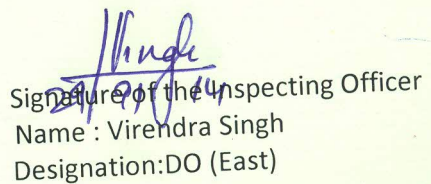 VSingh
29/9/14
Signature of the Inspecting Officer
Name : Virendra Singh
Designation:DO (East)